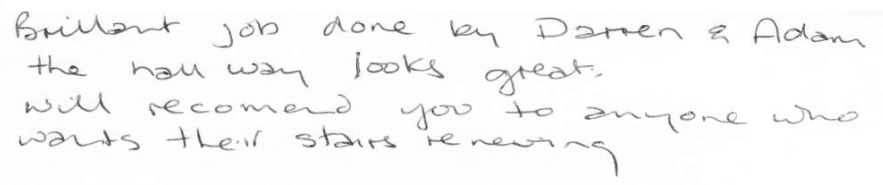 Brillant job done by Darren & Adam
the hall way looks great.
will recomend you to anyone who
wants their stairs renewing